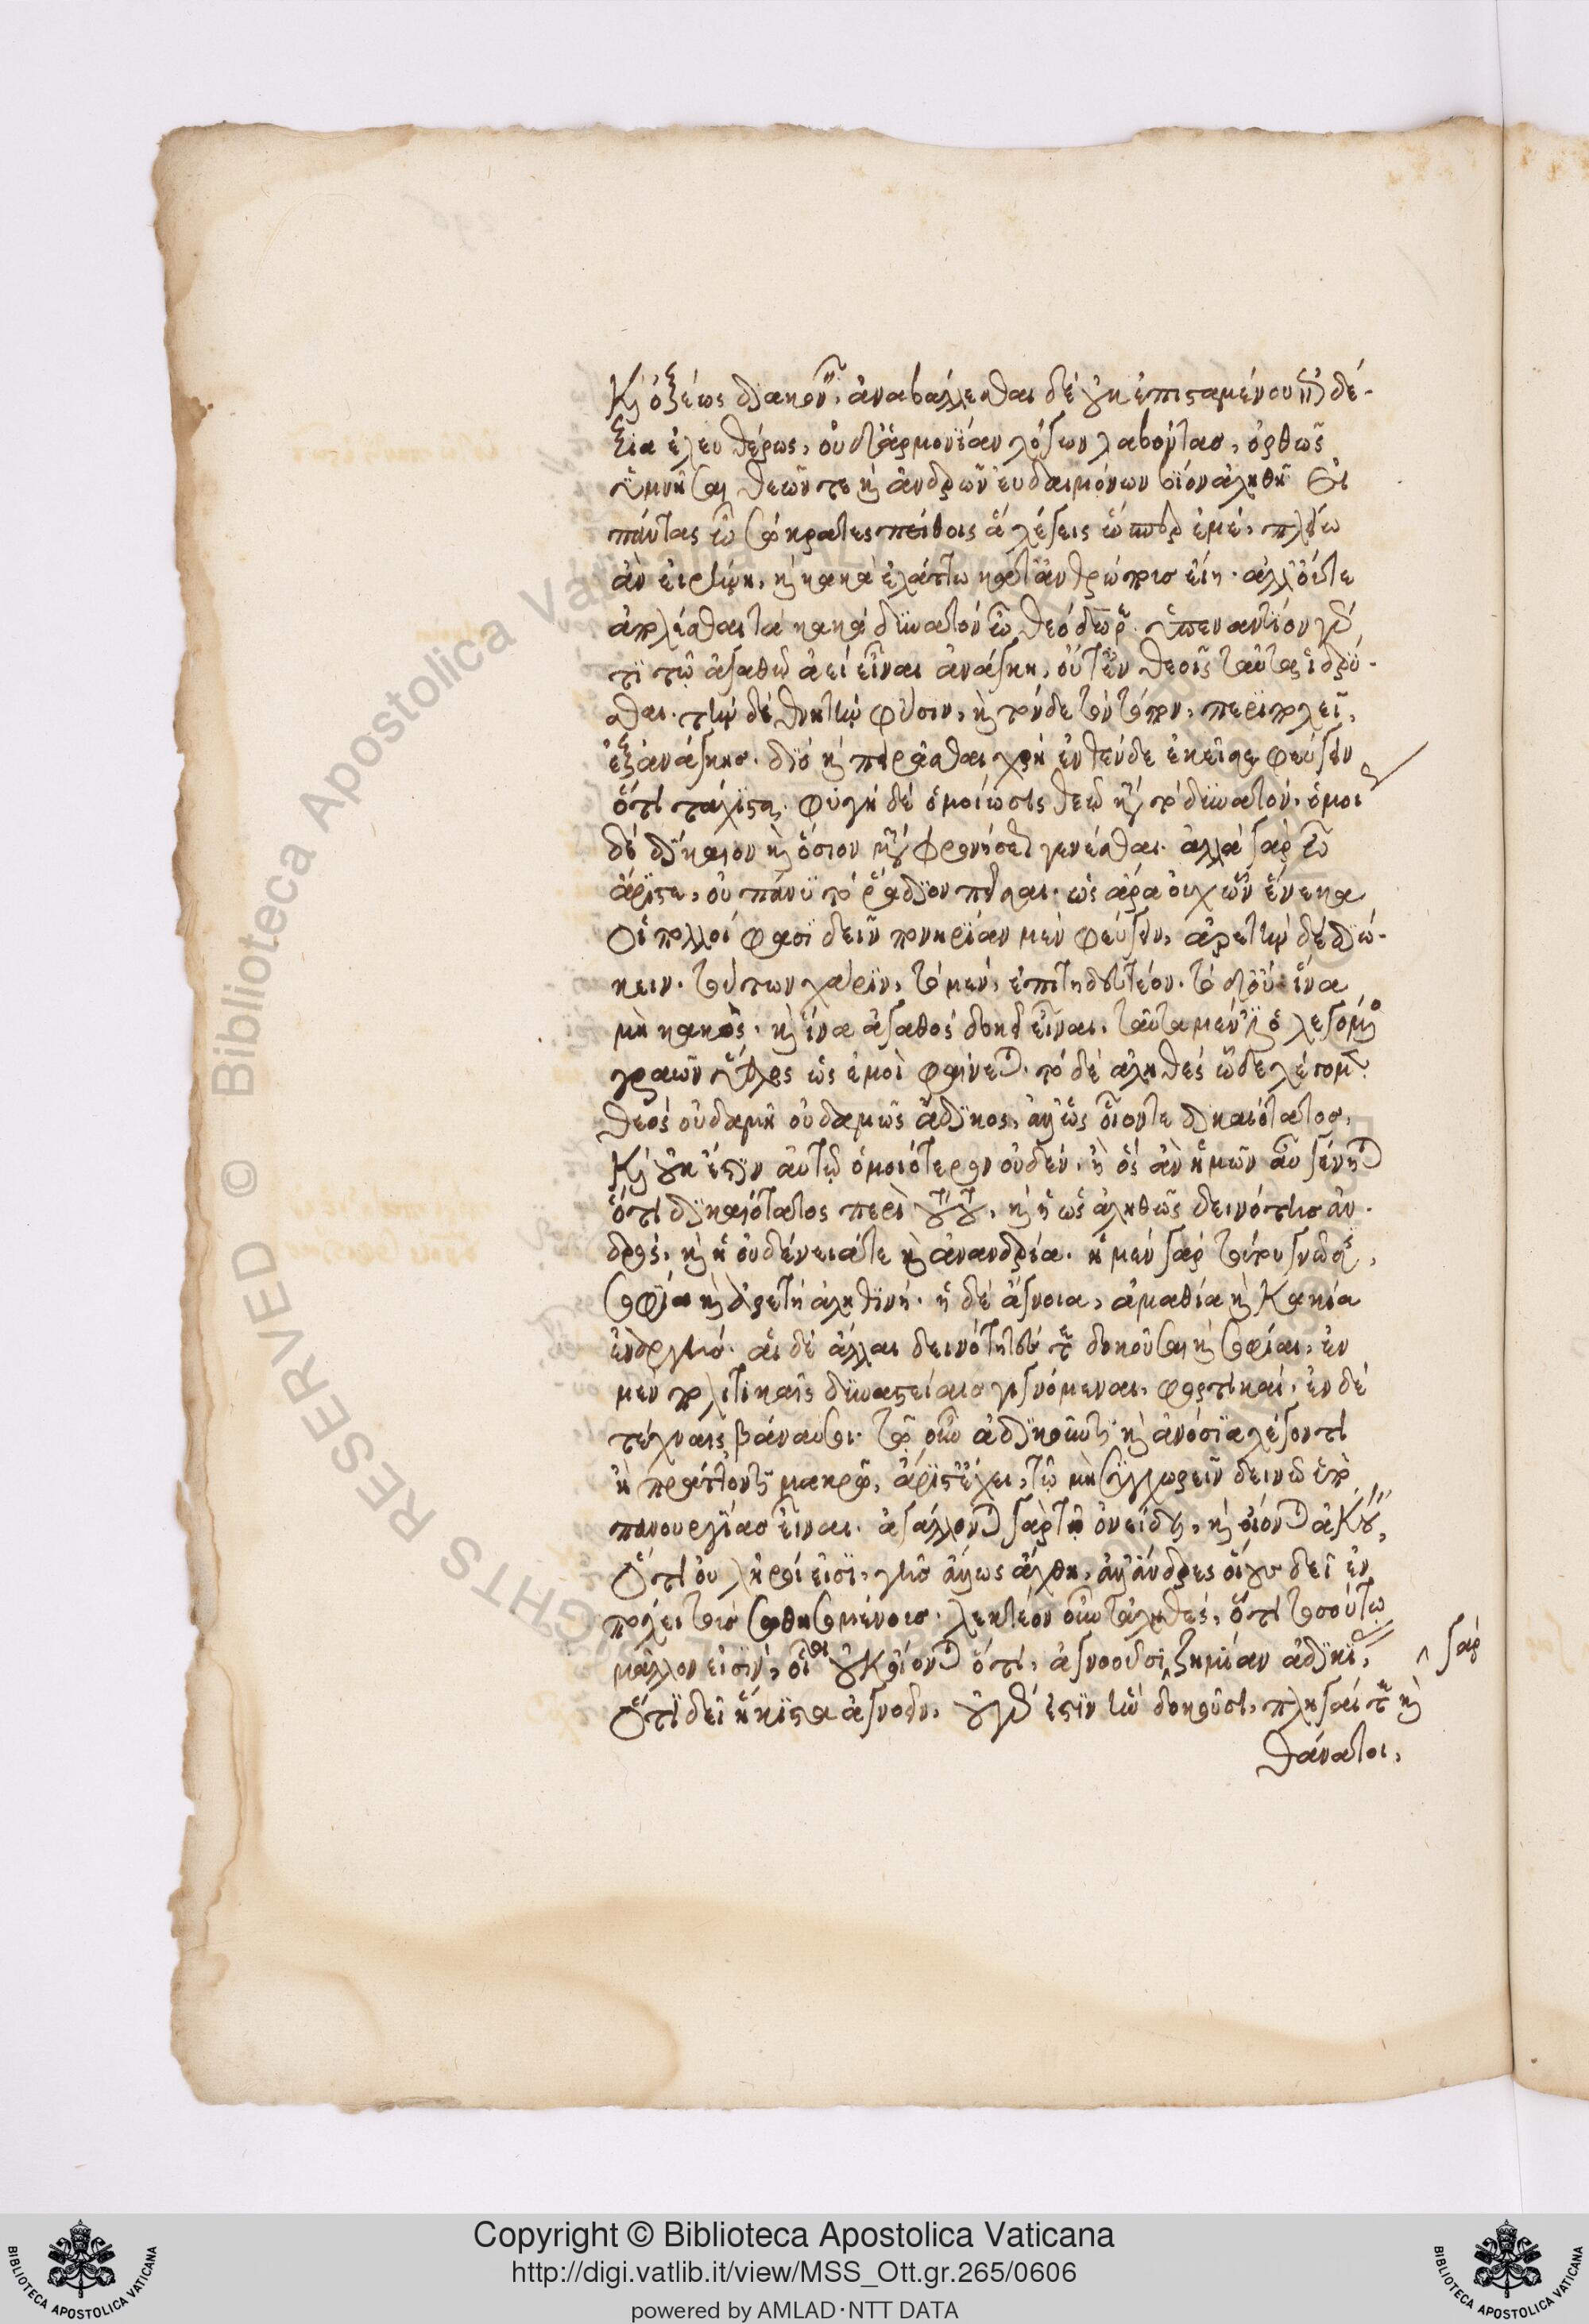 καὶ ὀξέως διακονεῖν, ἀναβάλλεσθαι δὲ οὐκ ἐπισταμένου ἐπιδέ-
ξια ἐλευθέρως, οὐδ' ἁρμονίαν λόγων λαβόντας, ὀρθῶς
ὑμνῆσαι θεῶν τε καὶ ἀνδρῶν εὐδαιμόνων βίον ἀληθῆ. Εἰ
πάντας ὦ σώκρατες πείθοις ἃ λέγεις ὥσπερ ἐμέ, πλείω
ἂν εἰρήνη, καὶ κακὰ ἐλάττω κατ' ἀνθρώπους εἴη. ἀλλ' οὔτε
ἀπολέσθαι τὰ κακὰ δυνατὸν ὦ θεόδωρε. ὑπεναντίον γάρ
τι τῷ ἀγαθῷ ἀεὶ εἶναι ἀνάγκη, οὔτ' ἐν θεοῖς ταῦτα ἱδρύ-
σθαι. τὴν δὲ θνητὴν φύσιν, καὶ τόνδε τὸν τόπον, περιπολεῖ,
ἐξ ἀνάγκης. διὸ καὶ πειρᾶσθαι χρὴ ἐνθένδε ἐκεῖσε φεύγειν
ὅτι τάχιστα. φυγὴ δὲ ὁμοίωσις θεῷ κατὰ τὸ δυνατόν. ὁμοι
δὲ δίκαιον καὶ ὅσιον μετὰ φρονήσεως γενέσθαι. ἀλλὰ γὰρ ὦ
ἄριστε, οὐ πάνυ τὸ ῥᾴδιον πεῖσαι. ὡς ἄρα οὐχ ὧν ἕνεκα
οἱ πολλοί φασι δεῖν πονηρίαν μὲν φεύγειν, ἀρετὴν δὲ διώ-
κειν. τούτων χάριν, τὸ μὲν, ἐπιτηδευτέον. τὸ δ' οὔ. ἵνα
μὴ κακὸς. καὶ ἵνα ἀγαθὸς δοκῇ εἶναι. ταῦτα μέν ἐστι ὁ λεγόμενος
γραῶν ὕθλος ὡς ἐμοὶ φαίνεται. τὸ δὲ ἀληθὲς ὧδε λέγομεν.
θεὸς οὐδαμῆ οὐδαμῶς ἄδικος, ἀλλ' ὡς οἷόντε δικαιότατος.
καὶ οὐκ ἔστιν αὐτῷ ὁμοιότερον οὐδέν. ἢ ὃς ἂν ἡμῶν αὖ γένηται
ὅτι δικαιότατος περὶ τούτου, καὶ ἡ ὡς ἀληθῶς δεινότης ἀν-
δρός. καὶ ἡ οὐδένειά τε καὶ ἀνανδρία. ἡ μὲν γὰρ τούτου γνῶσις,
σοφία καὶ ἀρετὴ ἀληθινή. ἡ δὲ ἄγνοια, ἀμαθία καὶ κακία
ἐναργής. αἱ δὲ ἄλλαι δεινότητές τε δοκοῦσαι καὶ σοφίαι, ἐν
μὲν πολιτικαῖς δυναστείαις γιγνόμεναι, φορτικαί. ἐν δὲ
τέχναις βάναυσοι. τῷ οὖν ἀδικοῦντι καὶ ἀνόσια λέγοντι
ἢ πράττοντι μακρῷ, ἄριστ' ἔχει, τῷ μὴ συγχωρεῖν δεινῷ ὑπὸ
πανουργίας εἶναι. ἀγάλλονται γὰρ τῷ ὀνείδει, καὶ οἴονται ἀκού,
ὅτι οὐ λῆροί εἰσι, γῆς ἄλλως ἄχθη, ἀλλ' ἄνδρες οἵους δεῖ ἐν
πόλει τοὺς σωθησομένους. λεκτέον οὖν τἀληθές, ὅτι τοσούτῳ
μᾶλλον εἰσὶν, οἷοι οὐκ οἴονται ὅτι, ἀγνοοῦσι ^ ζημίαν ἀδικί, ^ γὰρ
ὅτι δεῖ ἥκιστα ἀγνοεῖν, οὐ γάρ ἐστιν ἣν δοκοῦσι, πληγαί τε καὶ
θάνατοι,
Copyright © Biblioteca Apostolica Vaticana
http://digi.vatlib.it/view/MSS_Ott.gr.265/0606
powered by AMLAD·NTT DATA